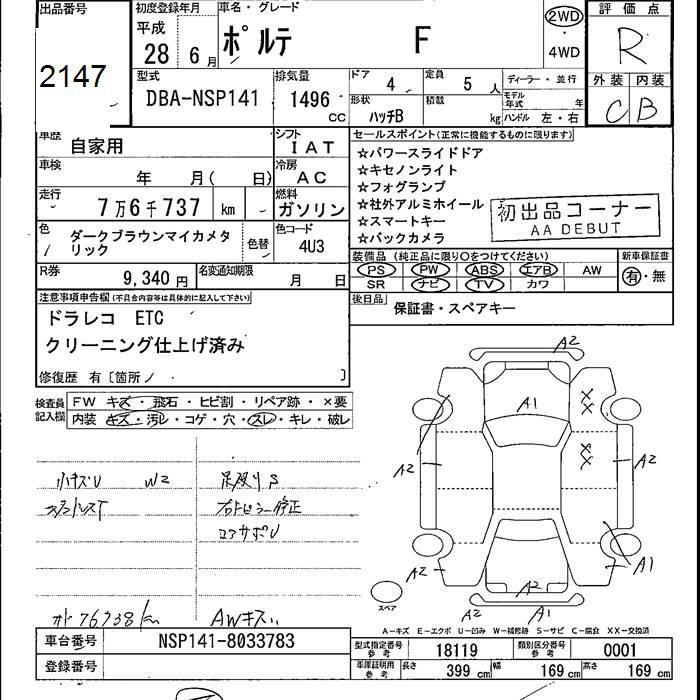 出品番号
2147
初度登録年月
平成
28 6月
車名・グレード
ポルテ F
2WD
・
4WD
評価点
R
外装 内装
C B
型式
DBA-NSP141
排気量
1496 CC
ドア 4
定員 5 人
形状 ハッチB
積載 kg
ディーラー・並行
モデル年式 年
ハンドル 左・右
車歴
自家用
シフト
IAT
車検
年 月( 日)
冷房
AC
走行
7万6千737 km
燃料
ガソリン
色
ダークブラウンマイカメタ
リック
色替
色コード
4U3
R券
9,340円
名変通知期限
月 日
セールスポイント(正常に機能するものに限ります)
☆パワースライドドア
☆キセノンライト
☆フォグランプ
☆社外アルミホイール
☆スマートキー
☆バックカメラ
初出品コーナー
AA DEBUT
装備品 (純正品に限り○をつけてください)
PS PW ABS エアB AW
SR ナビ TV カワ
新車保証書
有・無
後日品
保証書・スペアキー
注意事項申告欄(不具合内容等は具体的に記入して下さい)
ドラレコ ETC
クリーニング仕上げ済み
修復歴 有〔箇所 〕
検査員
記入欄
FW キズ・飛石・ヒビ割・リペア跡・×要
内装 キズ・汚レ・コゲ・穴・スレ・キレ・破レ
W2
コアサポU
76738km
AWキズ
A2
A1
XX
XX
A2
A2
A1
A2
A2
A2
A1
スペア
A-キズ E-エクボ U-凹み W-補修跡 S-サビ C-腐食 XX-交換済
車台番号
NSP141-8033783
登録番号
型式指定番号
参考
18119
類別区分番号
参考
0001
車庫証明用
参考
長さ 399 cm
幅 169 cm
高さ 169 cm